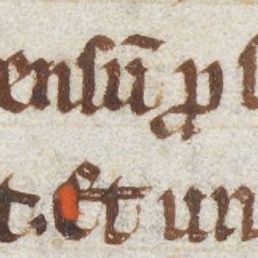 ensū ꝓ
t. Et un